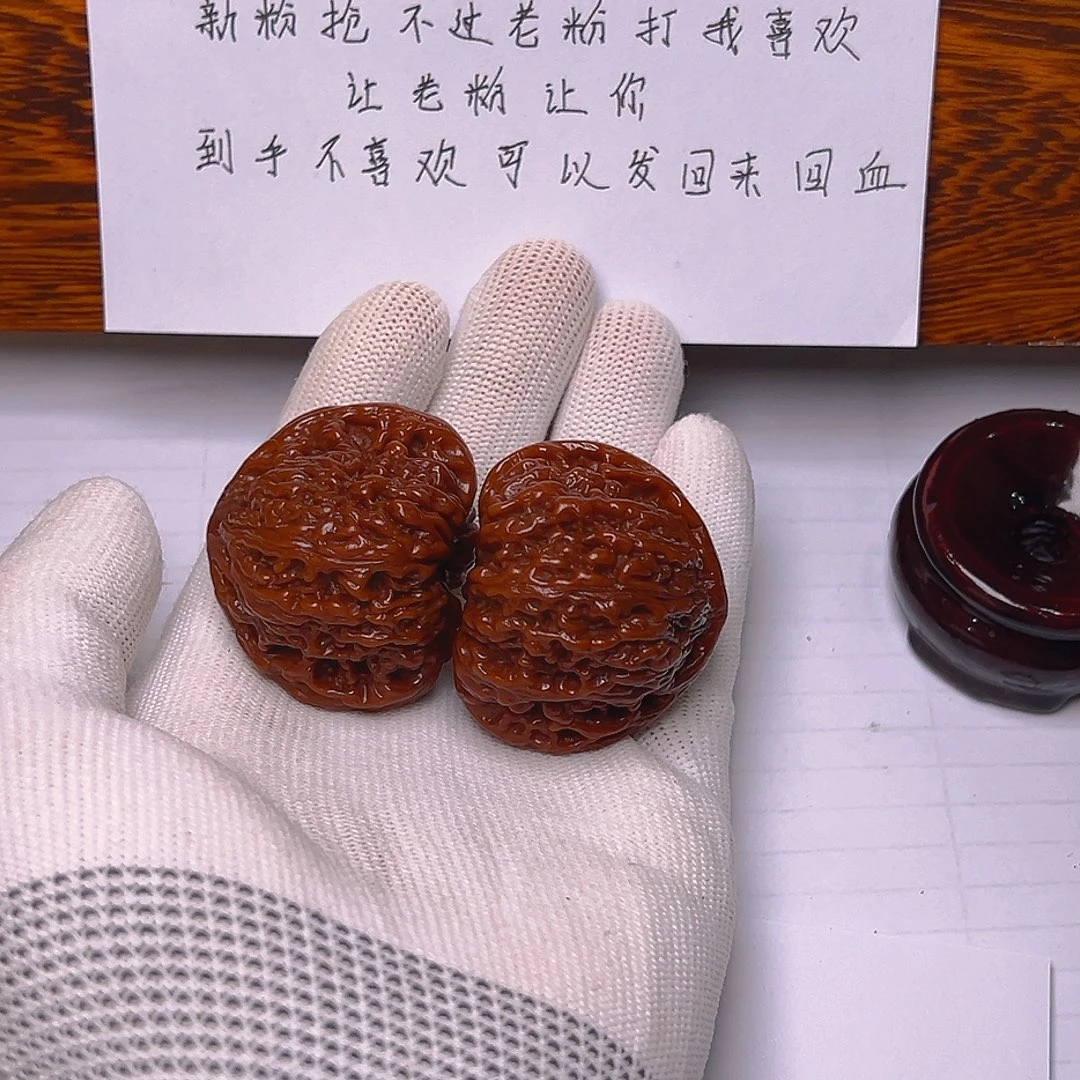 新粉抢不过老粉打我喜欢
让老粉让你
到手不喜欢可以发回来回血